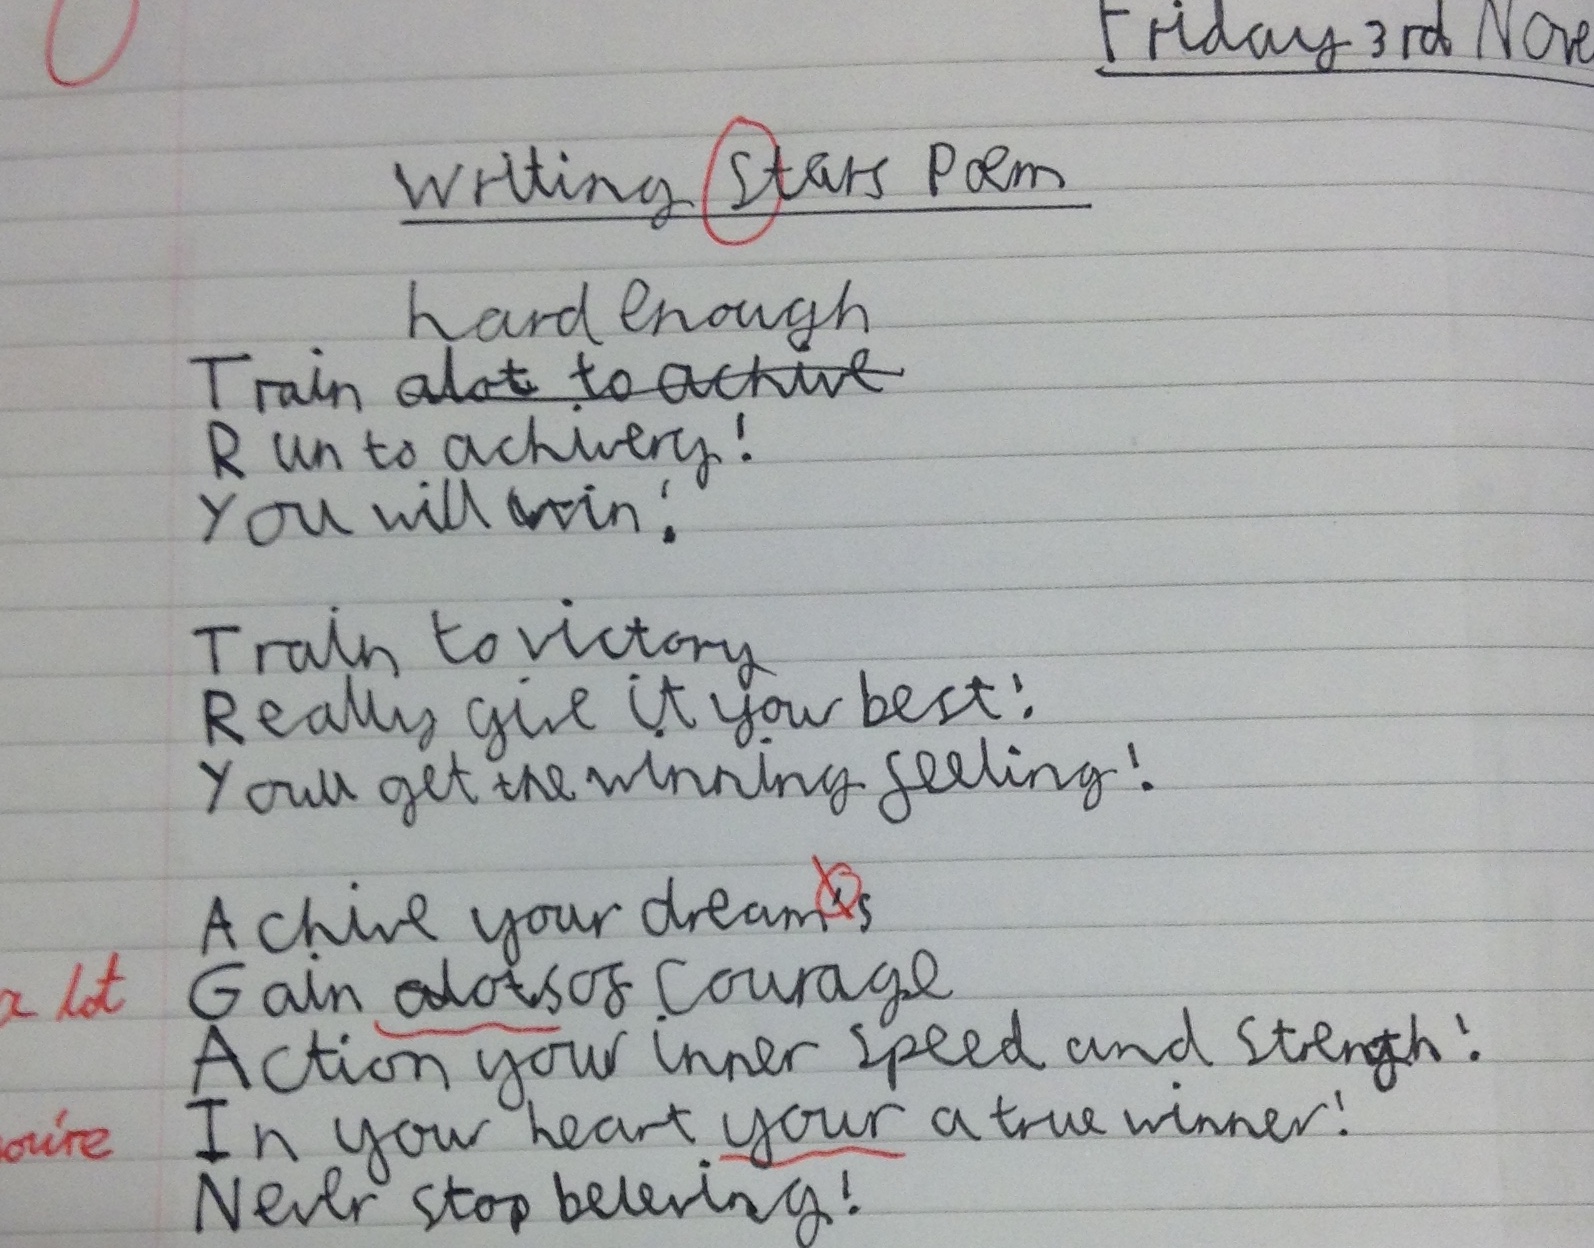 Friday 3rd Nove
Writing Stars Poem
hard enough
Train alot to achive
Run to achivery!
You will win!
Train to victory
Really give it your best!
Youll get the winning feeling!
Achive your dream's
a lot Gain alotsof courage
Action your inner speed and strength!
ou're In your heart your a true winner!
Never stop beleving!